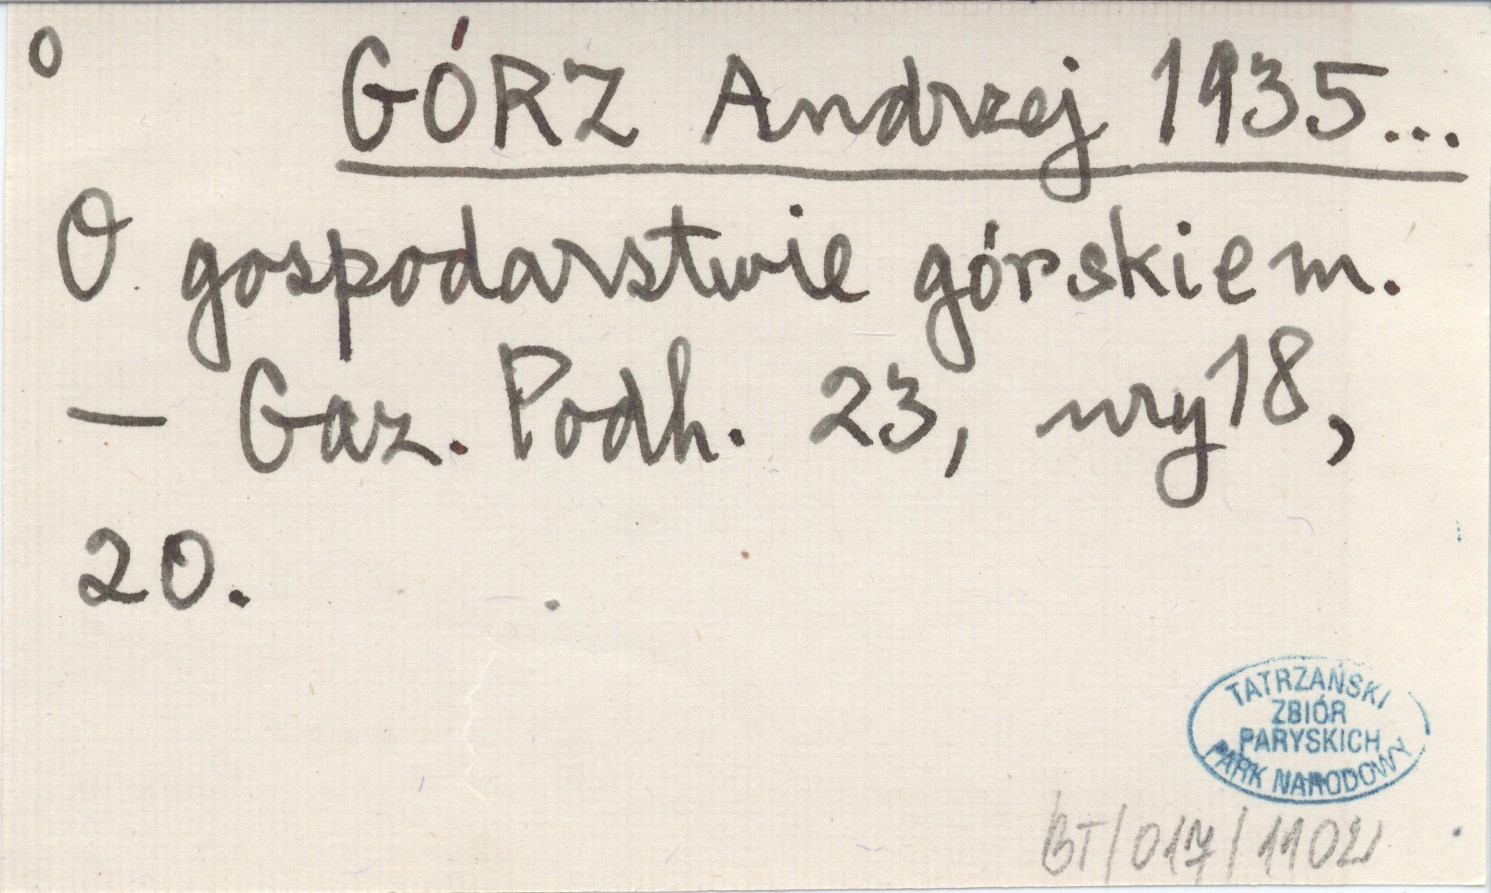 o
GÓRZ Andrzej 1935...
O gospodarstwie górskiem.
— Gaz. Podh. 23, nry 18,
20.
TATRZAŃSKI
ZBIÓR
PARYSKICH
PARK NARODOWY
BT/017/1102